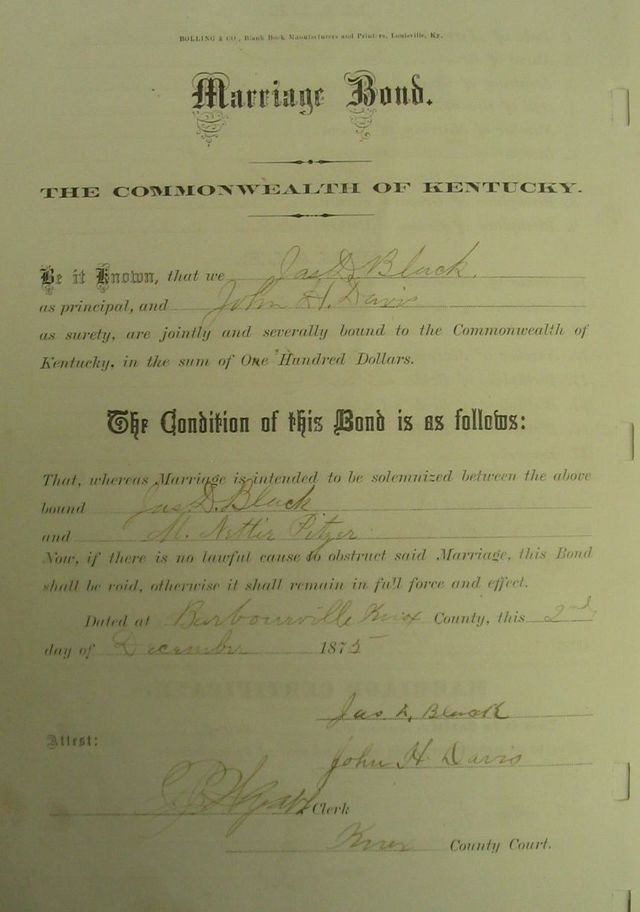 BOLLING & CO., Blank Book Manufacturers and Printers, Louisville, Ky.
Marriage Bond.
THE COMMONWEALTH OF KENTUCKY.
Be it Known, that we Jas D. Black.
as principal, and John H. Davis
as surety, are jointly and severally bound to the Commonwealth of
Kentucky, in the sum of One Hundred Dollars.
The Condition of this Bond is as follows:
That, whereas Marriage is intended to be solemnized between the above
bound Jas D. Black
and M. Nettie Pitzer
Now, if there is no lawful cause to obstruct said Marriage, this Bond
shall be void, otherwise it shall remain in full force and effect.
Dated at Barbourville Knox County, this 2nd
day of December 1875
Jas. D. Black
Attest:
John H. Davis
Clerk
Knox County Court.